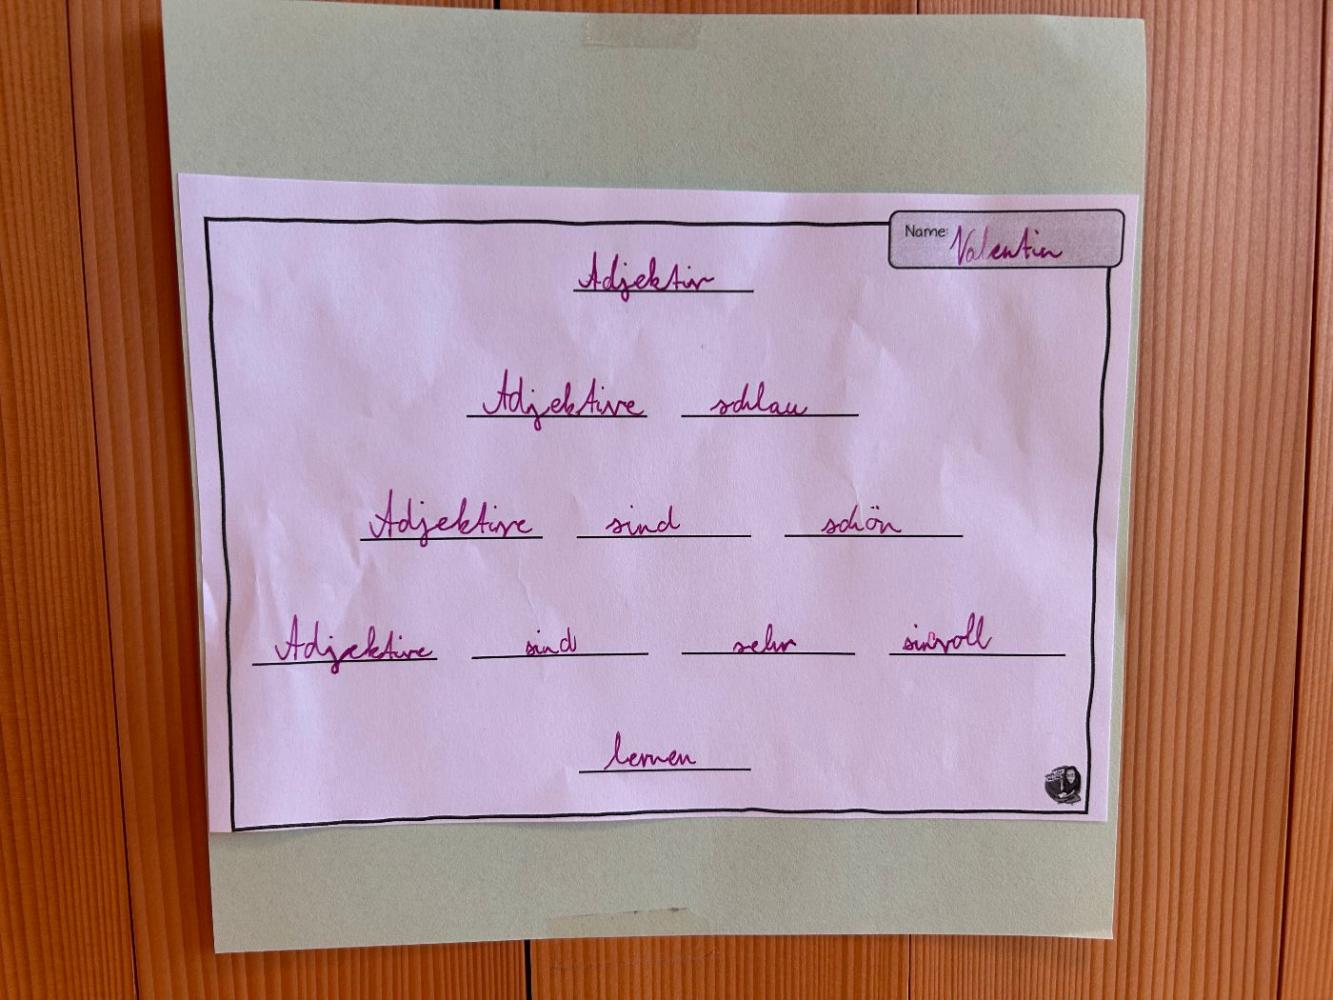 Name: Valentin
Adjektiv
Adjektive schlau
Adjektive sind schön
Adjektive sind sehr sinvoll
lernen